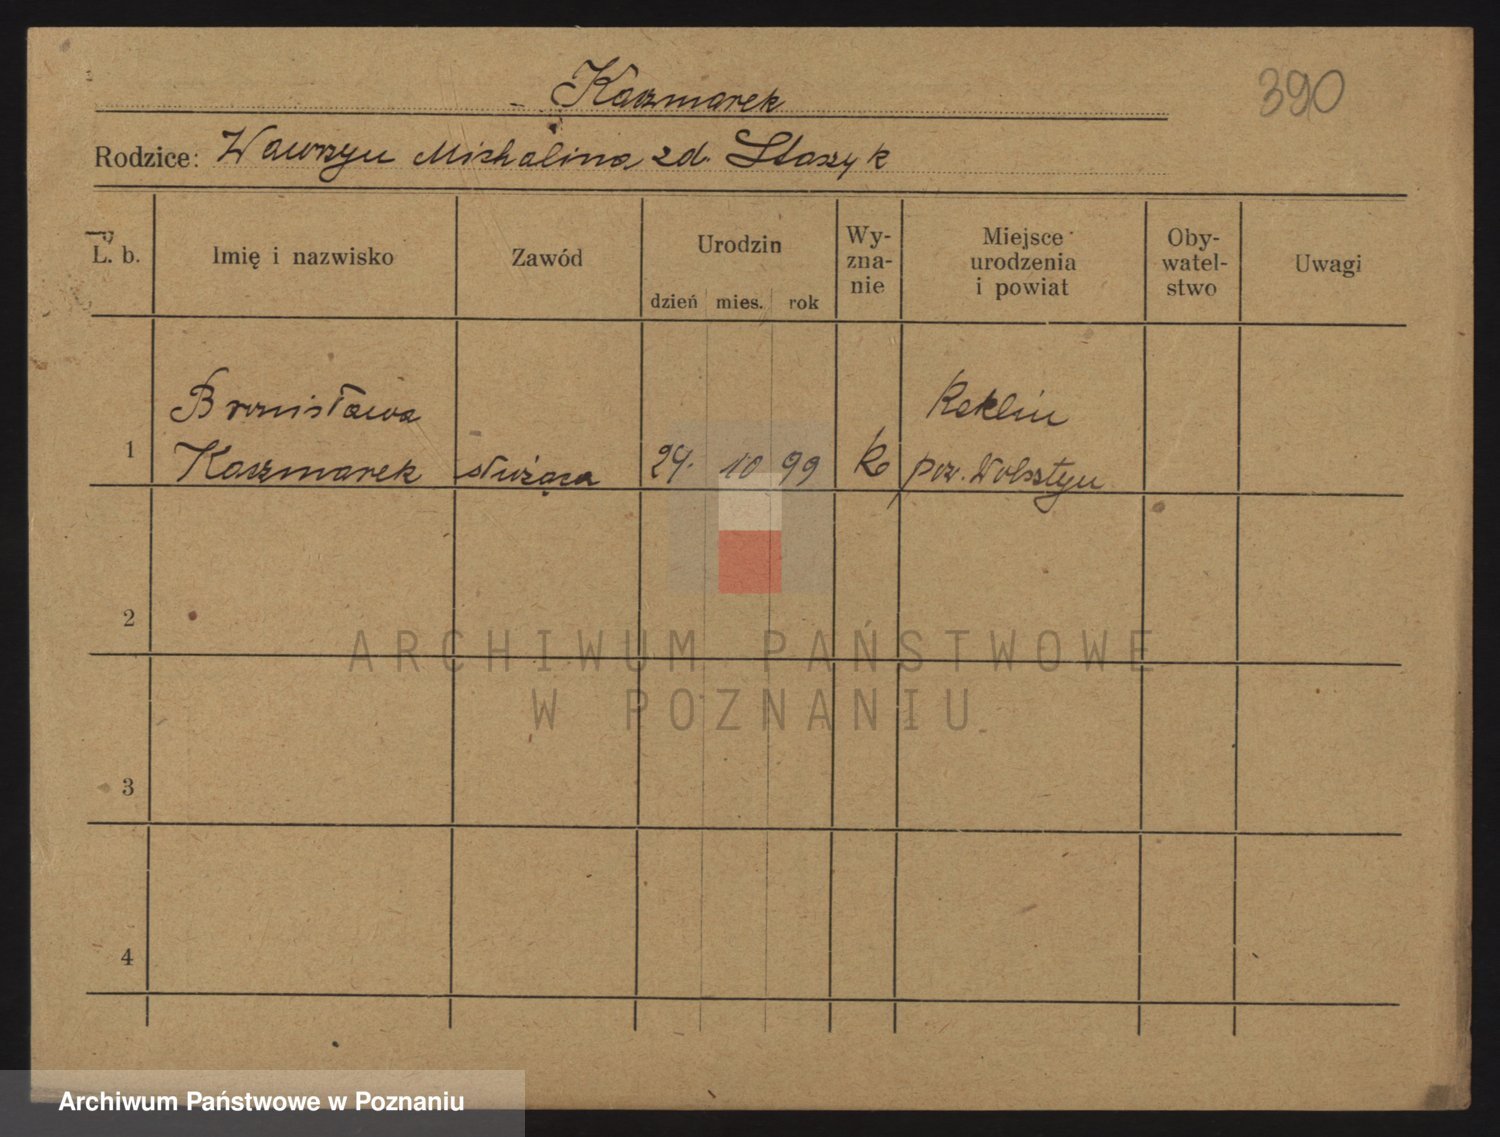 Kaczmarek
390
Rodzice: Wawrzyn Michalina zd. Staszyk
L. b.
Imię i nazwisko
Zawód
Urodzin
dzień mies. rok
Wy-
zna-
nie
Miejsce
urodzenia
i powiat
Oby-
watel-
stwo
Uwagi
1
Bronisława
Kaczmarek
służąca
29. 10 99
k
Reklin
pow. Wolsztyn
2
3
4
ARCHIWUM PAŃSTWOWE
W POZNANIU
Archiwum Państwowe w Poznaniu